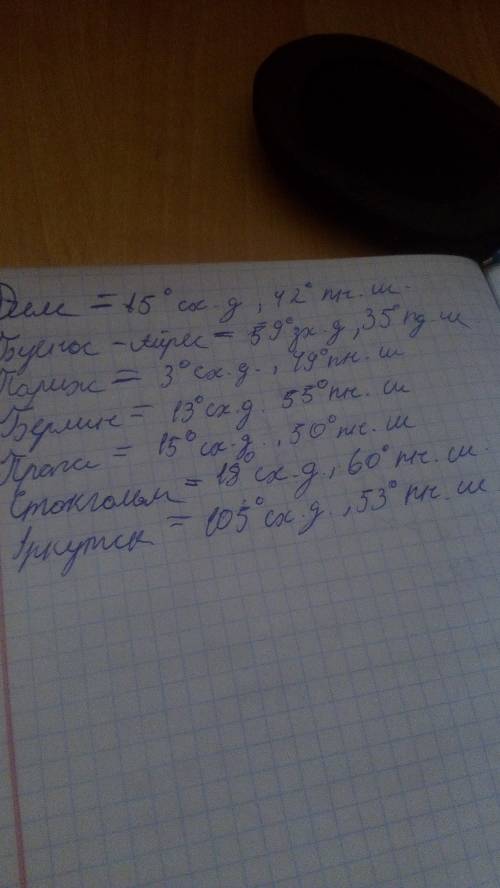 Рим = 15° сх.д, 42° пн.ш.
Буенос-Айрес = 59° зх.д, 35° пд.ш
Париж = 3° сх.д., 49° пн.ш
Берлин = 13° сх.д. 55° пн.ш
Прага = 15° сх.д., 50° пн.ш
Стокгольм = 18° сх.д, 60° пн.ш.
Іркутск = 105° сх.д., 53° пн.ш